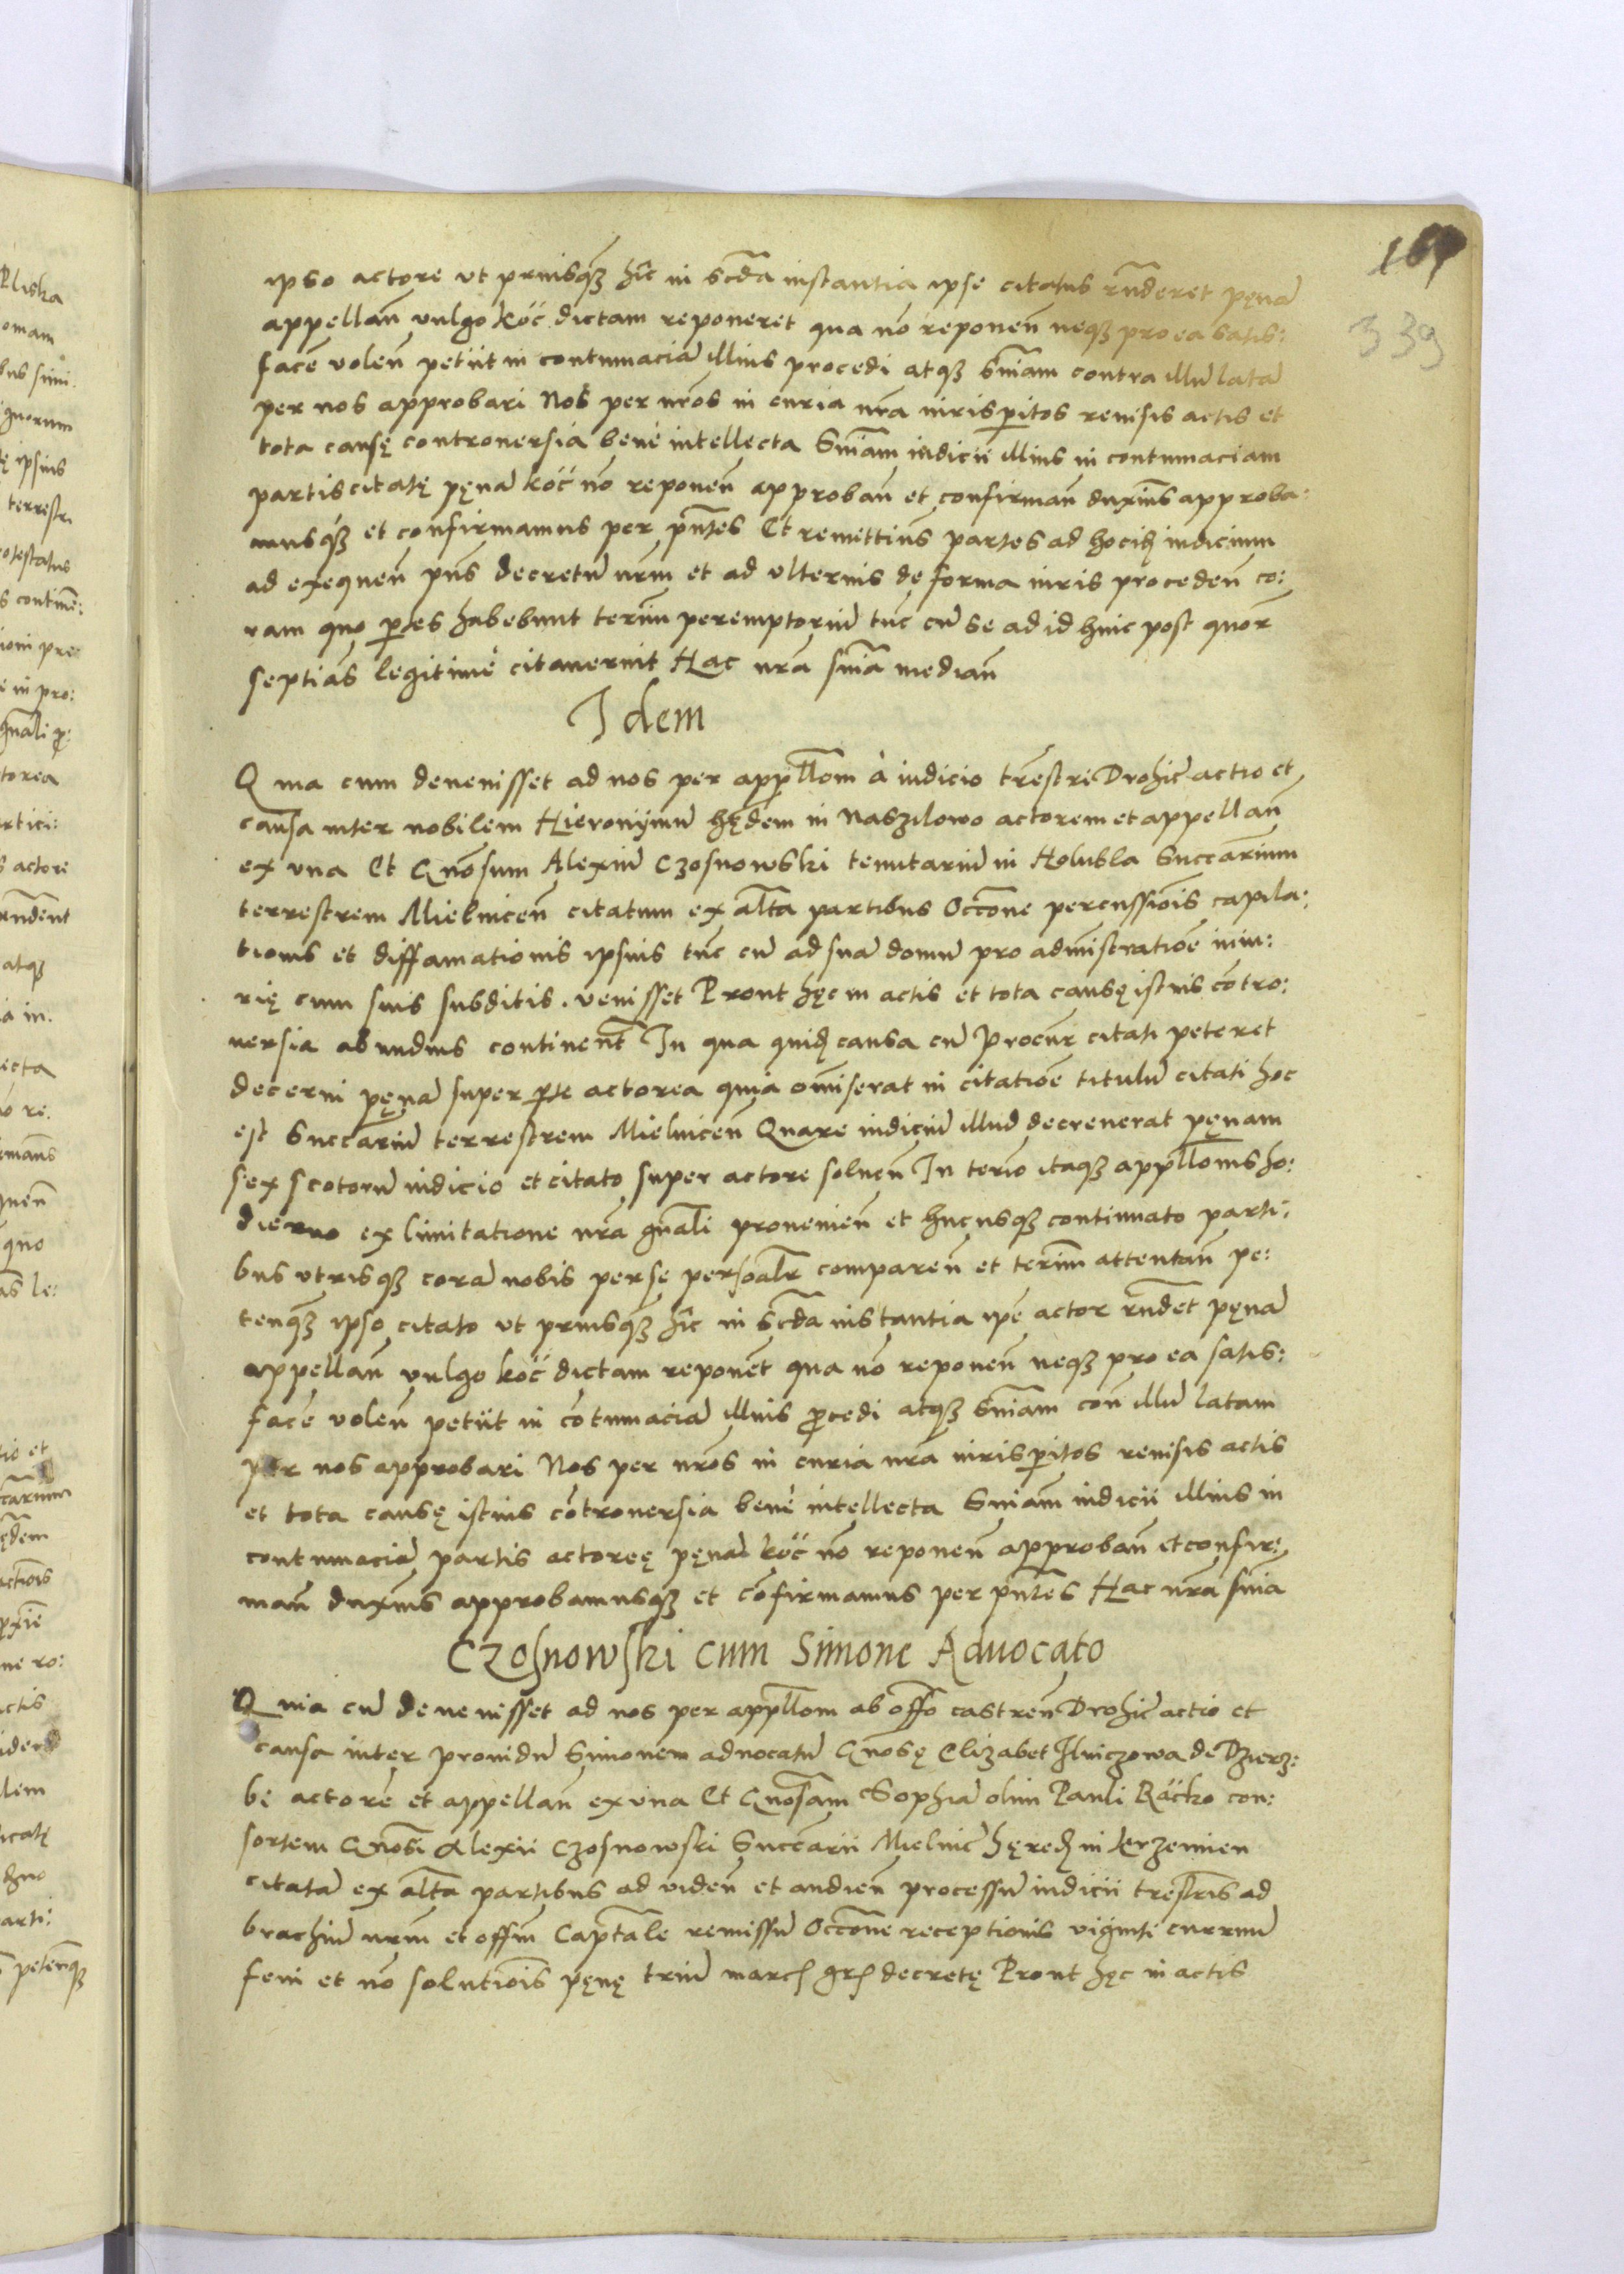 169
339
ipso actore ut priusq3 hic in scda instantia ipse citatus rnderet pęnā
appellan̄ vulgo köc dictam reponeret qua nō reponen̄ neq3 pro ea satis:
facē volen̄ petiit in contumaciā illius procedi atq3 sn̄iam contra illū latā
per nos approbari Nos per nr̄os in curia nr̄a iurisperitos reuisis actis et
tota causę controuersia benè intellecta Sn̄iam iudicii illius in contumaciam
partis citatę pęnā köc nō reponen̄ approban̄ et confirman̄ duxim̄s approba:
musq3 et confirmamus per pn̄tes Et remittim̄s partes ad hocid iudicium
ad exequen̄ pn̄s decretū nr̄m et ad vlterius de forma iuris proceden̄ co:
ram quo ptes habebunt termīn peremptoriū tūc cū se ad id huic post quor̄
septiās legitimè citauerint Hac nr̄a sn̄ia median̄
Idem
Quia cum deuenisset ad nos per appllōm à iudicio tr̄estri Drohic̄ actio et
causa inter nobilem Hieronijmū hędem in Naszilowo actorem et appellan̄
ex vna Et Gnōsum Alexiū Czosnowski tenutariū in Holubla Succārium
terrestrem Mielnicen̄ citatum ex alt̄a partibus Occōne percussiōis capila:
tionis et diffamationis ipsius tūc cū ad suā domū pro administratiōe iniu:
rię cum suis subditis venisset Prout hęc in actis et tota causę istius cōtro:
uersia abundius continent̄ In qua quid causa cū Procur̄ citati peteret
decerni pęnā super pte actorea quia omiserat in citatiōe titulū citati hoc
est Succāriū terrestrem Mielnicen̄ Quare iudiciū illud decreuerat pęnam
sex scotorū iudicio et citato super actore soluen̄ In term̄o itaq3 appllōnis ho:
dierno ex limitatione nr̄a gn̄ali prouenien̄ et hucusq3 continuato parti:
bus vtrisq3 corā nobis per se persōalr comparen̄ et term̄m attentan̄ pe:
tenq3 ipso citato vt priusq3 hic in scda instantia ipe actor rndet pęnā
appellan̄ vulgo köc dictam reponēt qua nō reponen̄ neq3 pro ea satis:
facē volen̄ petiit in cōtumaciā illius pcedi atq3 sn̄iam con̄ illū latam
per nos approbari Nos per nr̄os in curia nr̄a iurisperitos reuisis actis
et tota causę istius cōtrouersia benè intellecta Sn̄iam iudicii illius in
contumaciā partis actoreę pęnā köc nō reponen̄ approban̄ et confir:
man̄ duxim̄s approbamusq3 et cōfirmamus per pn̄tes Hac nr̄a sn̄ia
Czosnowski cum Simone Aduocato
Quia cū deuenisset ad nos per appllōm ab offō castren̄ Drohic̄ actio et
causa inter prouidū Simonem aduocatū Gnōsę Elizabet Ilniczowa de Dzierz:
bę actorē et appellan̄ ex vna Et Gnōsam Sophiā olim Pauli Räcko con:
sortem Gnōsi Alexii Czosnowski Succārii Mielnic̄ hęred in Jerzemien
citatā ex alt̄a partibus ad viden̄ et audien̄ processū iudicii tr̄estris ad
brachiū nr̄m et offm̄ Captāle remissū Occōne receptionis viginti curruū
feni et nō solutiōis pęnę triū marc̄ gr̄ decretę Prout hęc in actis